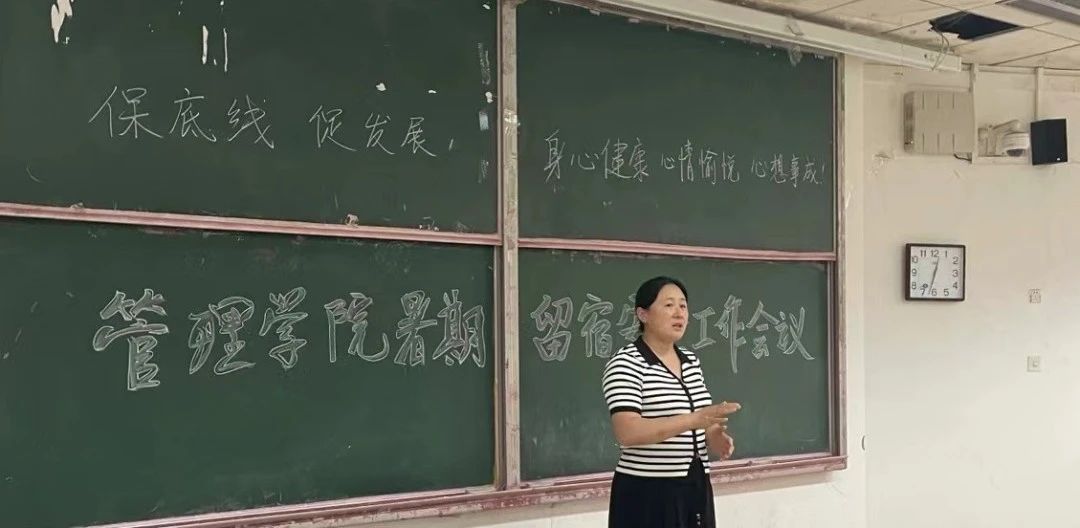 保底线 促发展，
身心健康 心情愉悦 心想事成！
管理学院暑期留宿安 工作会议
12
1
2
3
4
5
6
7
8
9
10
11